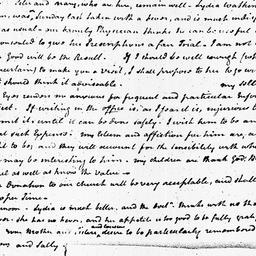 and mary, who are here, remain well - Lydia Washin
, was, Sunday last taken with a fever, and is much indis
as usual - our family Physician thinks he can be useful
consented to give his Prescriptions a fair Trial - I am not
Good will be the Result. If I should be well enough (wh
uncertain) to make you a visit, I shall propose to her to go w
should think it adviseable - my self
Eyes renders me anxious for frequent and particular infor
ect. If writing in the office is, as I fear is, injurious t
mit it, until it can be done safely. I wish them to be an
at each Expence: my Esteem and affliction for him are, a
to be; and they will account for the sensibility with wh
may be interesting to him - my children are thank God. H
el as well as know the Value -
Donation to our church will be very acceptable, and shall
oper Time -
noon - Lydia is much better, and the Doctr. thinks with us tha
us - she has no fever, and her appetite is too good to be fully grat
our Mother and Mary and Louisa desire to be particularly remembered
and Sally